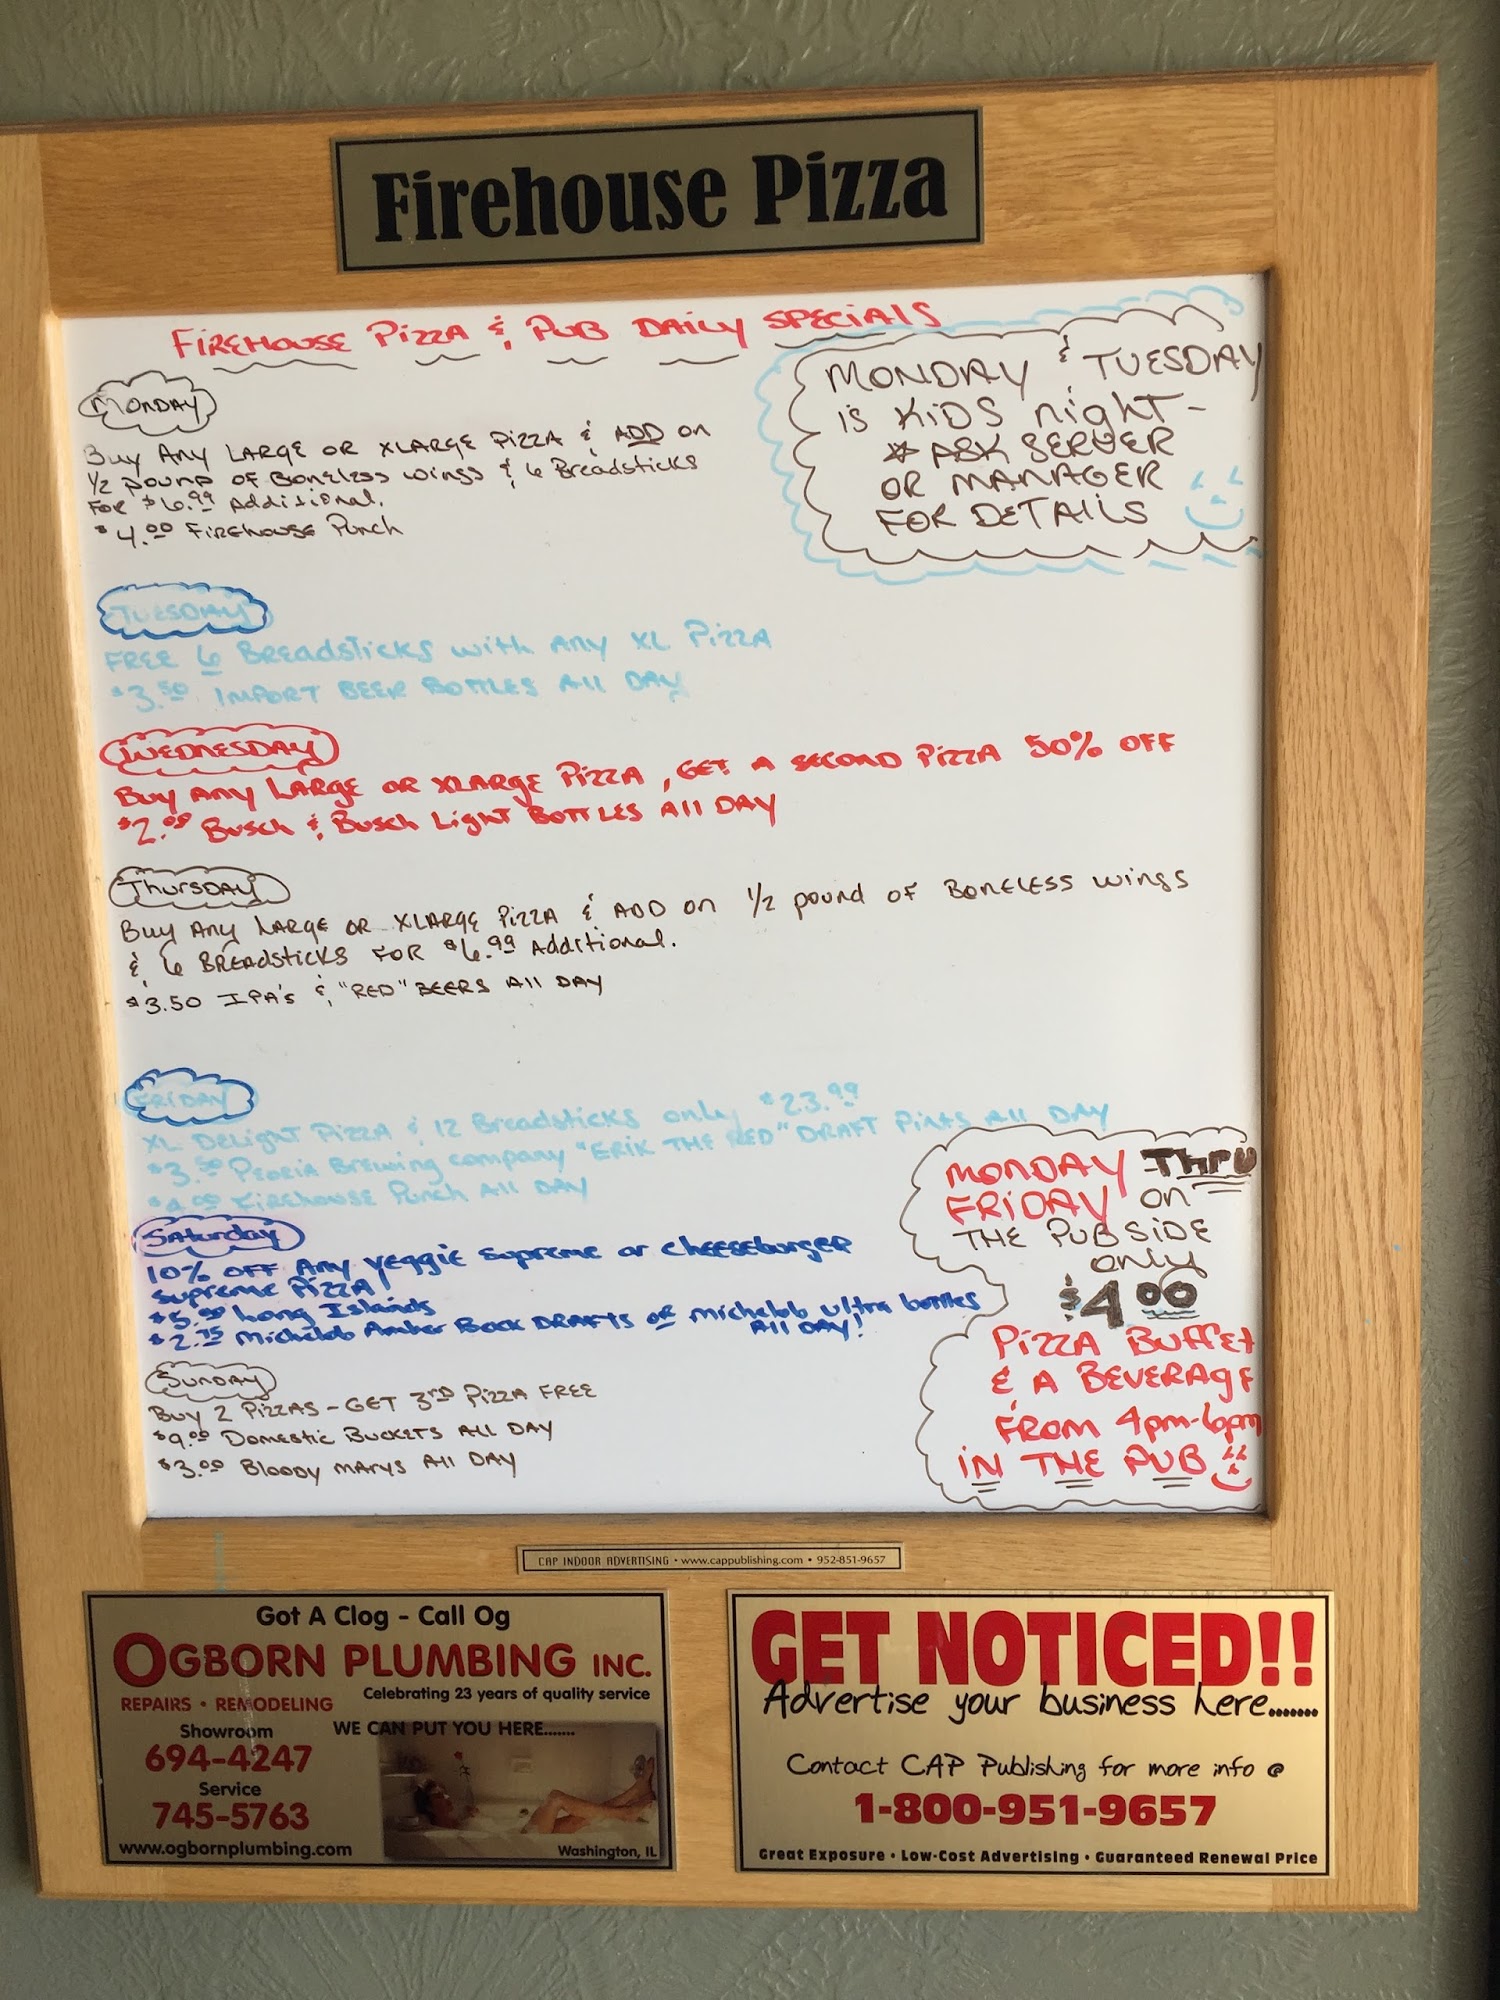 Firehouse Pizza
FIREHOUSE PIZZA & PUB DAILY SPECIALS
MONDAY
BUY ANY LARGE OR XLARGE PIZZA & ADD ON
1/2 POUND OF BONELESS WINGS & 6 BREADSTICKS
FOR $6.99 ADDITIONAL.
$4.00 FIREHOUSE PUNCH
MONDAY & TUESDAY
IS KIDS NIGHT -
* ASK SERVER
OR MANAGER
FOR DETAILS
TUESDAY
FREE 6 BREADSTICKS WITH ANY XL PIZZA
$3.50 IMPORT BEER BOTTLES ALL DAY
WEDNESDAY
BUY ANY LARGE OR XLARGE PIZZA, GET A SECOND PIZZA 50% OFF
$2.00 BUSCH & BUSCH LIGHT BOTTLES ALL DAY
THURSDAY
BUY ANY LARGE OR XLARGE PIZZA & ADD ON 1/2 POUND OF BONELESS WINGS
& 6 BREADSTICKS FOR $6.99 ADDITIONAL.
$3.50 IPA'S & "RED" BEERS ALL DAY
FRIDAY
XL DELIGHT PIZZA & 12 BREADSTICKS ONLY $23.99
$3.50 PEORIA BREWING COMPANY "ERIK THE RED" DRAFT PINTS ALL DAY
$4.00 FIREHOUSE PUNCH ALL DAY
Saturday
10% OFF ANY veggie supreme or cheeseburger
supreme PIZZA!
$5.50 Long Islands
$2.75 Michelob Amber Bock DRAFTS OR Michelob ultra bottles
ALL DAY!
SUNDAY
BUY 2 PIZZAS - GET 3RD PIZZA FREE
$9.00 DOMESTIC BUCKETS ALL DAY
$3.00 BLOODY MARYS ALL DAY
MONDAY THRU
FRIDAY ON
THE PUB SIDE
ONLY
$4.00
PIZZA BUFFET
& A BEVERAGE
FROM 4pm-6pm
IN THE PUB
CAP INDOOR ADVERTISING • www.cappublishing.com • 952-851-9657
Got A Clog - Call Og
OGBORN PLUMBING INC.
REPAIRS • REMODELING
Celebrating 23 years of quality service
Showroom
694-4247
Service
745-5763
www.ogbornplumbing.com
WE CAN PUT YOU HERE.......
Washington, IL
GET NOTICED!!
Advertise your business here.......
Contact CAP Publishing for more info @
1-800-951-9657
Great Exposure • Low-Cost Advertising • Guaranteed Renewal Price